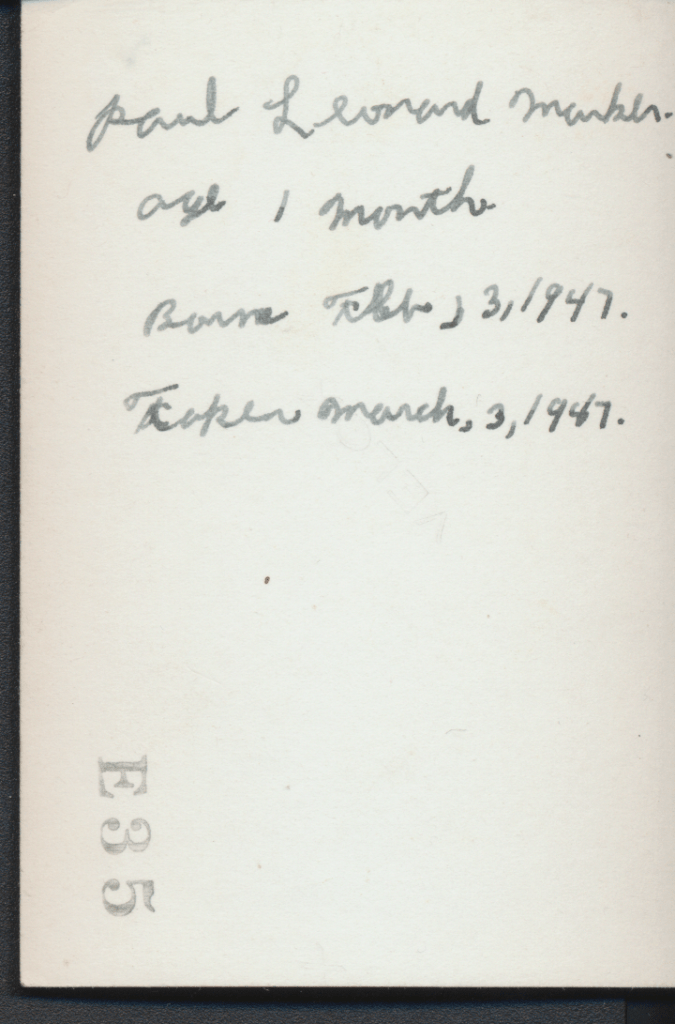 Paul Leonard Marker.
age 1 month
Born Feb, 3, 1947.
Taken March, 3, 1947.
E35